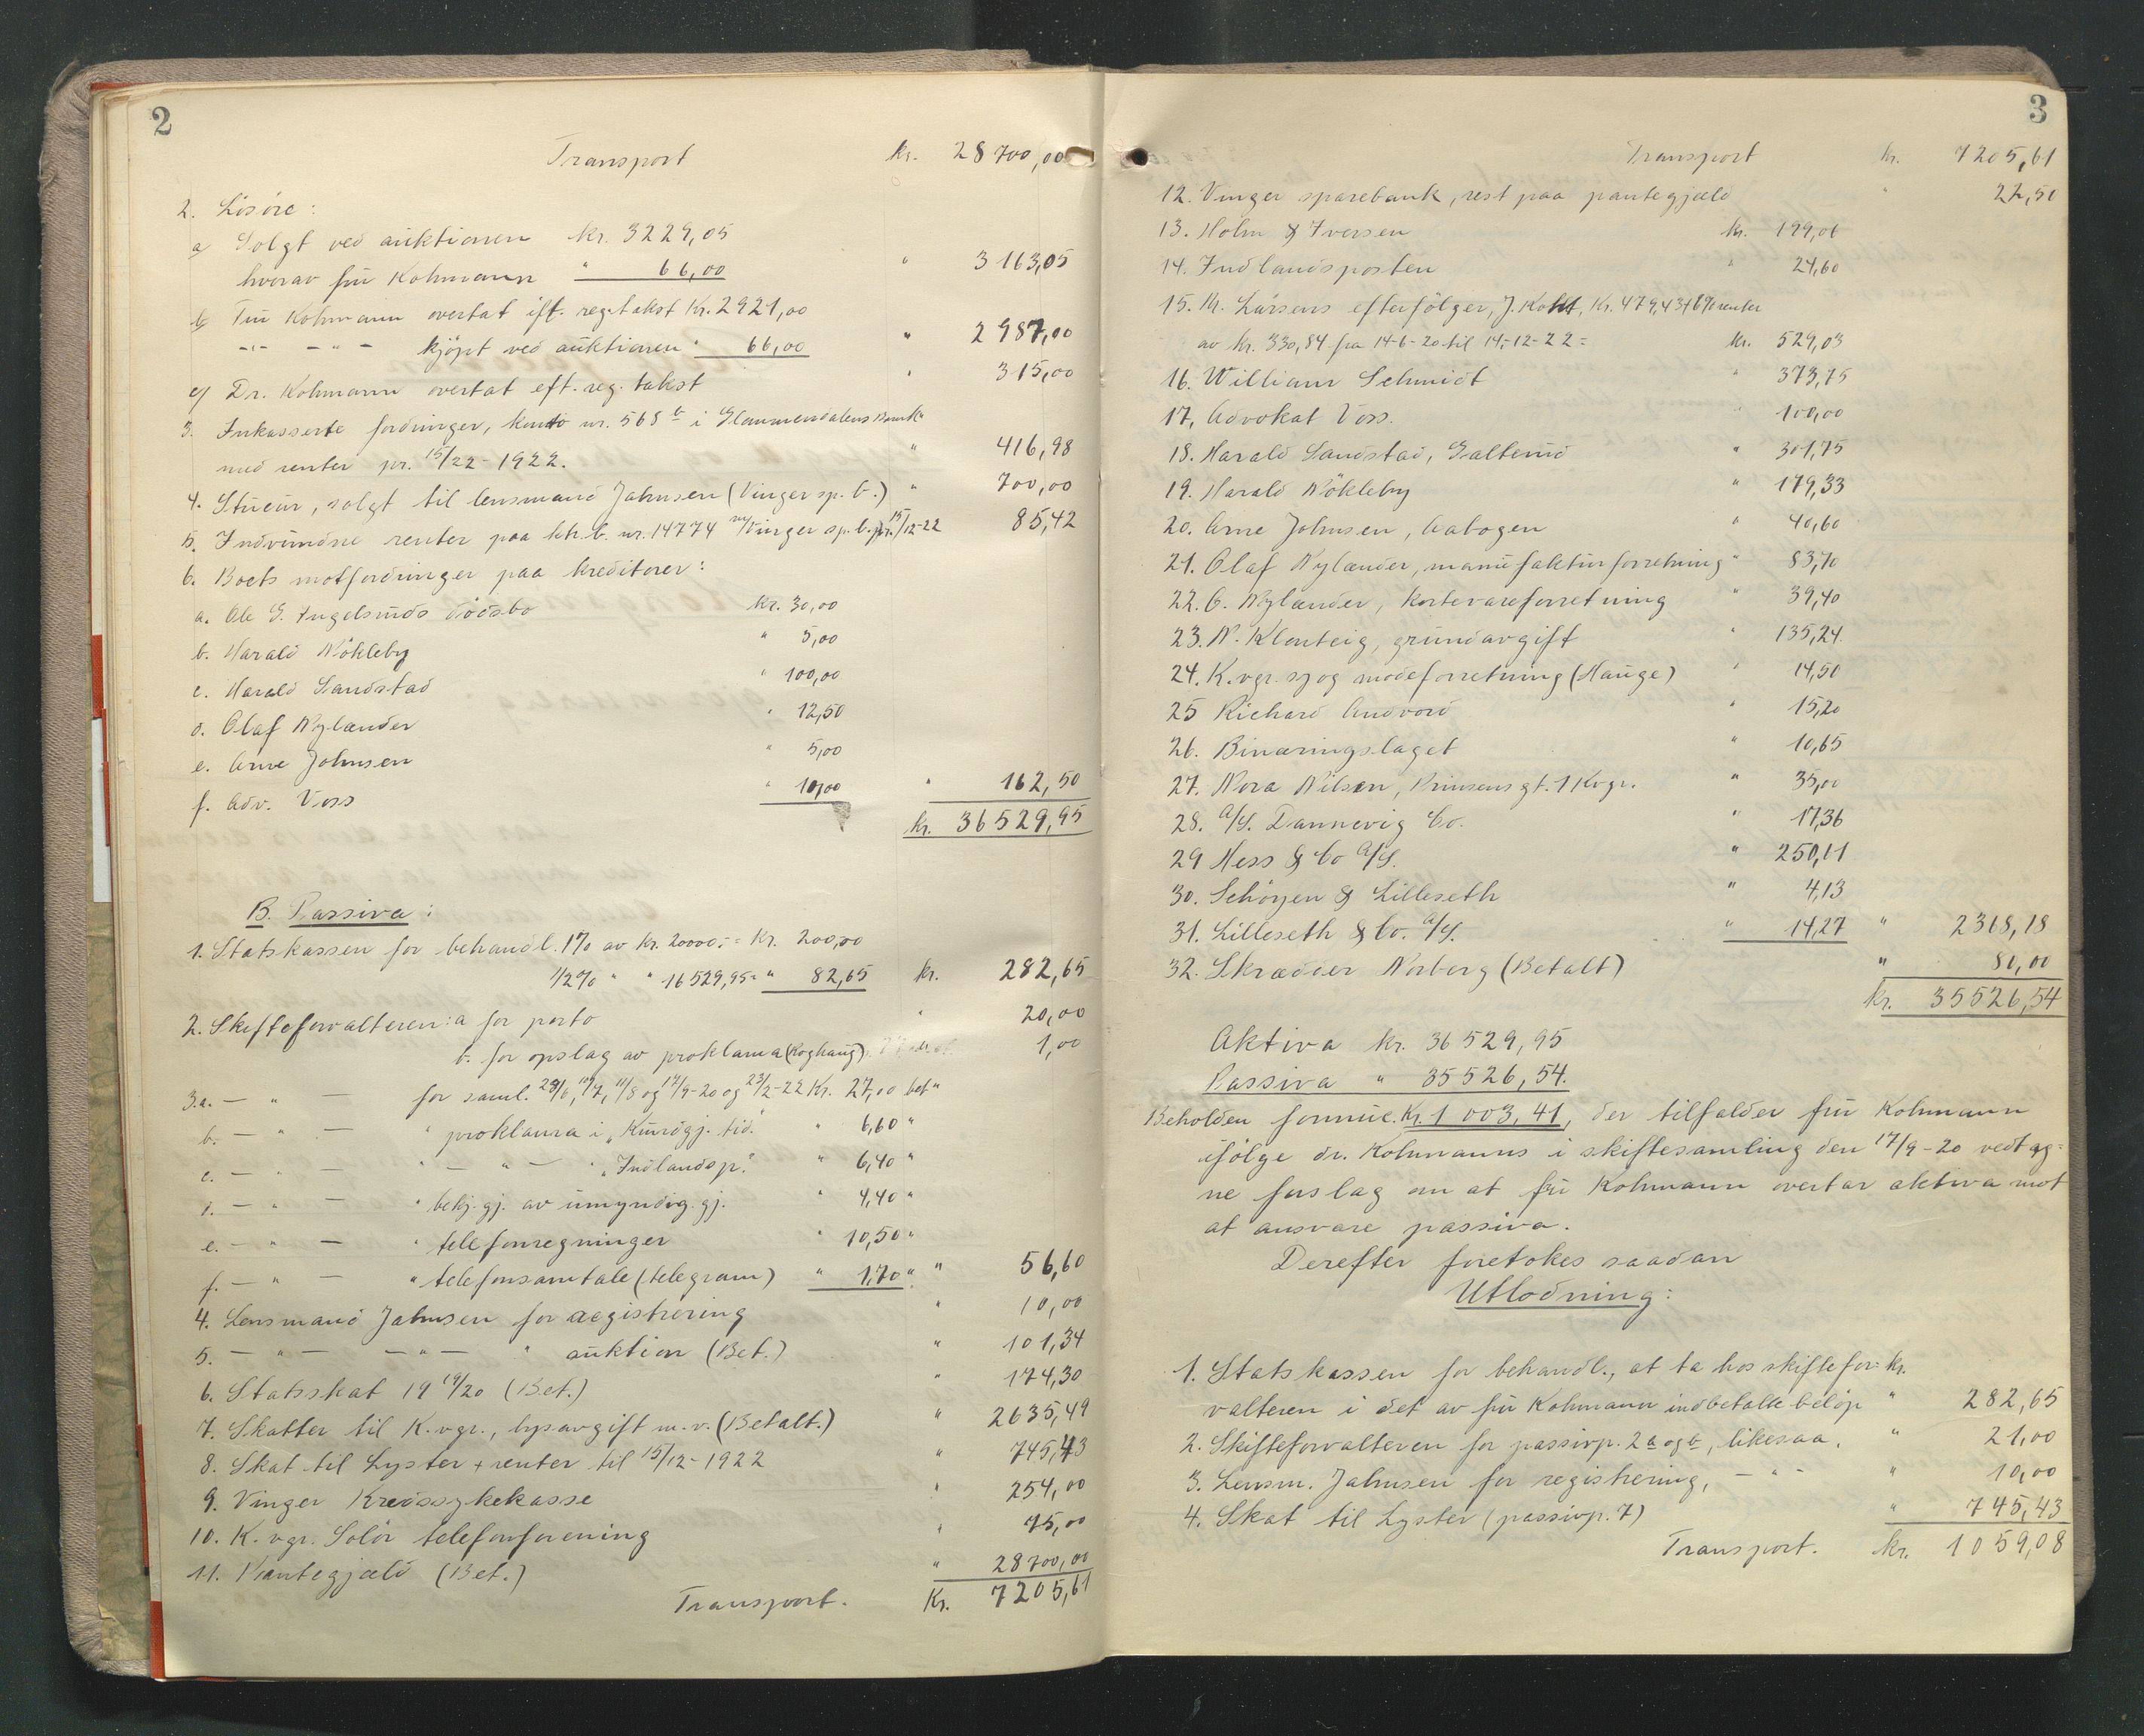 2
Transport kr. 28700,00
2. Lösöre:
a Solgt ved auktionen kr. 3229,05
hvorav fru Kohmann " 66,00 " 3163,05
b Fru Kohmann overtat ift. reg.takst Kr. 2921,00
-"- -"- kjöpt ved auktionen " 66,00 " 2987,00
c) Dr. Kohmann overtat eft. reg. takst " 315,00
3. Inkasserte fordringer, konto nr. 568 b i Glommendalens Bank
med renter pr. 15/22-1922. " 416,98
4. Stueur, solgt til lensmand Jahnsen (Vinger sp. b.) " 700,00
5. Indvundne renter paa ktr. b. nr. 14774 Vinger sp. b. pr. 15/12-22 85,42
6. Boets motfordringer paa kreditorer:
a. Ole G. Ingelsruds dödsbo kr. 30,00
b. Harald Nökleby " 5,00
c. Harald Sandstad " 100,00
d. Olaf Nylænder " 12,50
e. Arne Johnsen " 5,00
f. Adv. Voss " 10,00 " 162,50
kr. 36529,95
B. Passiva:
1. Statskassen for behandl. 1% av kr. 20000,- = Kr. 200,00
1/2% " " 16529,95 = " 82,65 kr. 282,65
2. Skifteforvalteren: a for porto " 20,00
b. for opslag av proklama (Roghaug) " 1,00
3.a. — " — for saml. 28/6, 10/7, 11/8 og 17/9-20 og 23/2-22 Kr. 27,00 bet "
b. — " — " proklama i "Kundgj. tid." " 6,60 "
c. — " — " — " — " "Indlandsp." " 6,40 "
d. — " — " bekj. gj. av umyndig. gj. " 4,40 "
e. — " — " telefonregninger " 10,50 "
f. — " — " telefonsamtale (telegram) " 1,70 " " 56,60
4. Lensmand Jahnsen for registrering " 10,00
5. — " — — " — " auktion (Bet.) " 101,34
6. Statsskat 19 19/20 (Bet.) " 174,30
7. Skatter til K.vgr., lysavgift m.v. (Betalt.) " 2635,49
8. Skat til Lyster + renter til 15/12-1922 " 745,43
9. Vinger Kredssykekasse " 254,00
10. K.vgr. Solör telefonforening " 75,00
11. Pantegjæld (Bet.) " 28700,00
Transport. Kr. 7205,61
3
Transport kr. 7205,61
12. Vinger sparebank, rest paa pantegjæld " 22,50
13. Holm & Iversen kr. 199,06
14. Indlandsposten " 24,60
15. M. Larsens efterfölger, J. Kohlt, Kr. 479,43 + 6% renter
av kr. 330,84 fra 14-6-20 til 14-12-22 = kr. 529,03
16. William Schmidt " 373,75
17. Advokat Voss. " 100,00
18. Harald Sandstad, Galterud " 301,75
19. Harald Nökleby " 179,33
20. Arne Johnsen, Aabogen " 40,60
21. Olaf Nylænder, manufakturforretning " 83,70
22. C. Nylænder, kortevareforretning " 39,40
23. N. Klenteig, grundavgift " 135,24
24. K.vgr. sy og modeforretning (Hauge) " 14,50
25 Richard Andvord " 15,20
26. Binæringslaget " 10,65
27. Nora Nilsen, Prinsensgt. 1 Kvgr. " 35,00
28. A/S. Dannevig Co. " 17,36
29 Hess & Co A/S. " 250,11
30. Schöyen & Lilleseth " 4,13
31. Lilleseth & Co. A/S. " 14,27 " 2318,18
32. Skrædder Norberg (Betalt) " 80,00
kr. 35526,54
Aktiva kr. 36529,95
Passiva " 35526,54.
Beholden formue. Kr. 1003,41, der tilfalder fru Kohmann
ifölge dr. Kohmanns i skiftesamling den 17/9-20 vedtag-
ne forslag om at fru Kohmann overtar aktiva mot
at ansvare passiva.
Derefter foretokes saadan
Utlodning:
1. Statskassen for behandl., at ta hos skiftefor- kr.
valteren i det av fru Kohmann indbetalte belöp " 282,65
2. Skifteforvalteren for passivp. 2 a og b, likesaa. " 21,00
3. Lensm. Jahnsen for registrering, -"- " 10,00
4. Skat til Lyster (passivp. 7) " 745,43
Transport. kr. 1059,08